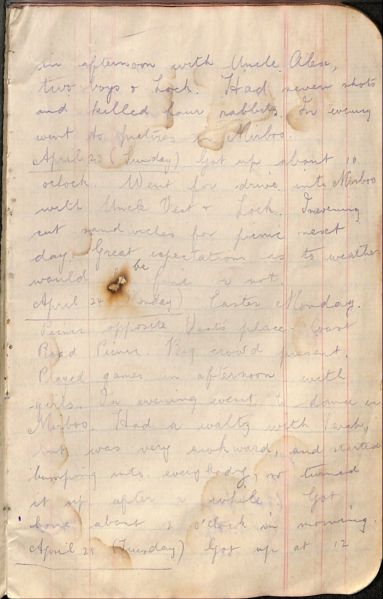 in afternoon with Uncle Alex,
two boys & Lock. Had seven shots
and killed four rabbits. In evening
went to pictures in Mirboo.
April 23 (Sunday) Got up about 10
oclock. Went for drive into Mirboo
with Uncle & Lock. In evening
cut sandwiches for picnic next
day. Great expectations as to weather
would be fine or not.
April 24 (Monday) Easter Monday.
Picnic opposite place
Road Picnic. Big crowd present.
Played games in afternoon with
girls. In evening went to dance in
Mirboo. Had a waltz with
but was very awkward, and started
bumping into everybody, so turned
it up after a while. Got
home about 2 o'clock in morning.
April 25 (Tuesday) Got up at 12